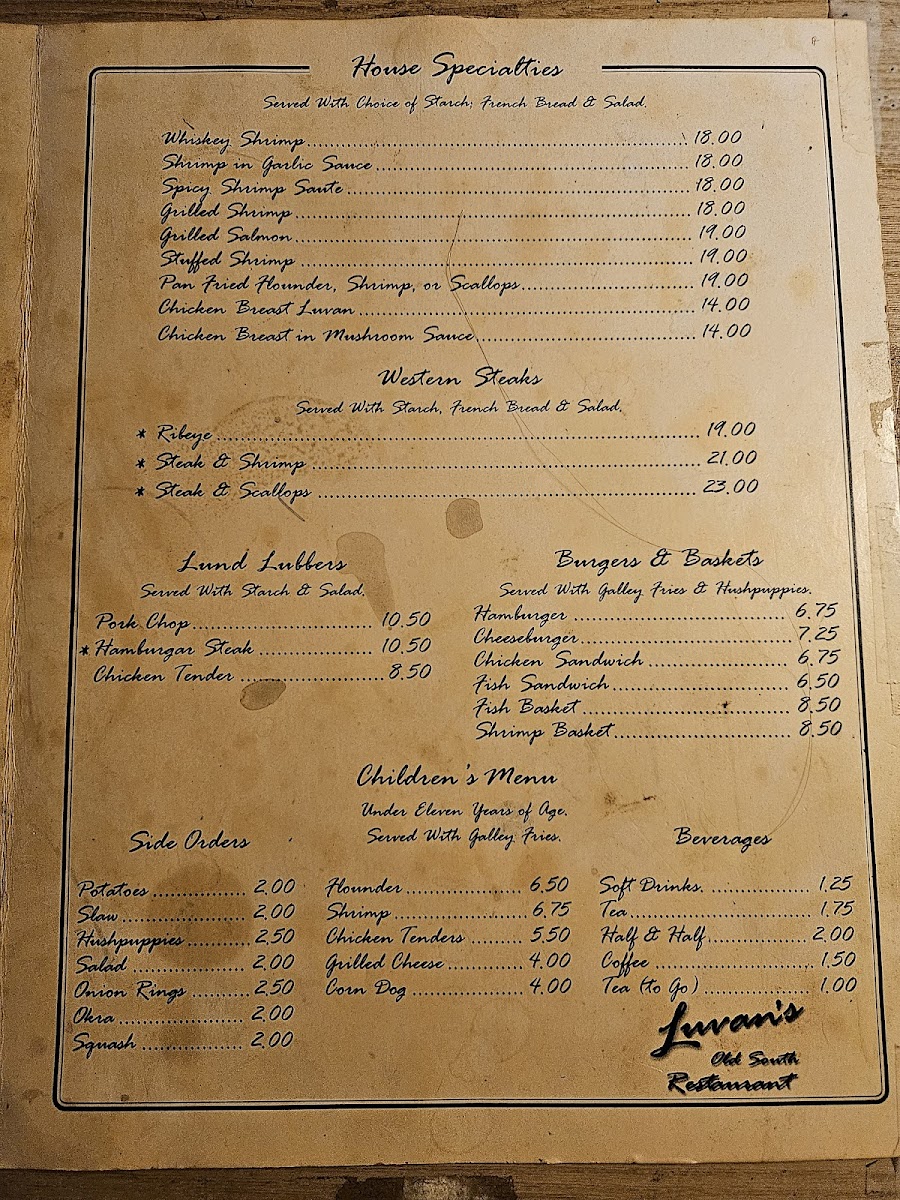 House Specialties
Served With Choice of Starch; French Bread & Salad.
Whiskey Shrimp 18.00
Shrimp in Garlic Sauce 18.00
Spicy Shrimp Saute 18.00
Grilled Shrimp 18.00
Grilled Salmon 19.00
Stuffed Shrimp 19.00
Pan Fried Flounder, Shrimp, or Scallops 19.00
Chicken Breast Luvan 14.00
Chicken Breast in Mushroom Sauce 14.00
Western Steaks
Served With Starch, French Bread & Salad.
* Ribeye 19.00
* Steak & Shrimp 21.00
* Steak & Scallops 23.00
Lund Lubbers
Served With Starch & Salad.
Pork Chop 10.50
* Hamburgar Steak 10.50
Chicken Tender 8.50
Burgers & Baskets
Served With Galley Fries & Hushpuppies.
Hamburger 6.75
Cheeseburger 7.25
Chicken Sandwich 6.75
Fish Sandwich 6.50
Fish Basket 8.50
Shrimp Basket 8.50
Side Orders
Potatoes 2.00
Slaw 2.00
Hushpuppies 2.50
Salad 2.00
Onion Rings 2.50
Okra 2.00
Squash 2.00
Children's Menu
Under Eleven Years of Age.
Served With Galley Fries.
Flounder 6.50
Shrimp 6.75
Chicken Tenders 5.50
Grilled Cheese 4.00
Corn Dog 4.00
Beverages
Soft Drinks. 1.25
Tea 1.75
Half & Half 2.00
Coffee 1.50
Tea (to Go) 1.00
Luvan's
Old South
Restaurant